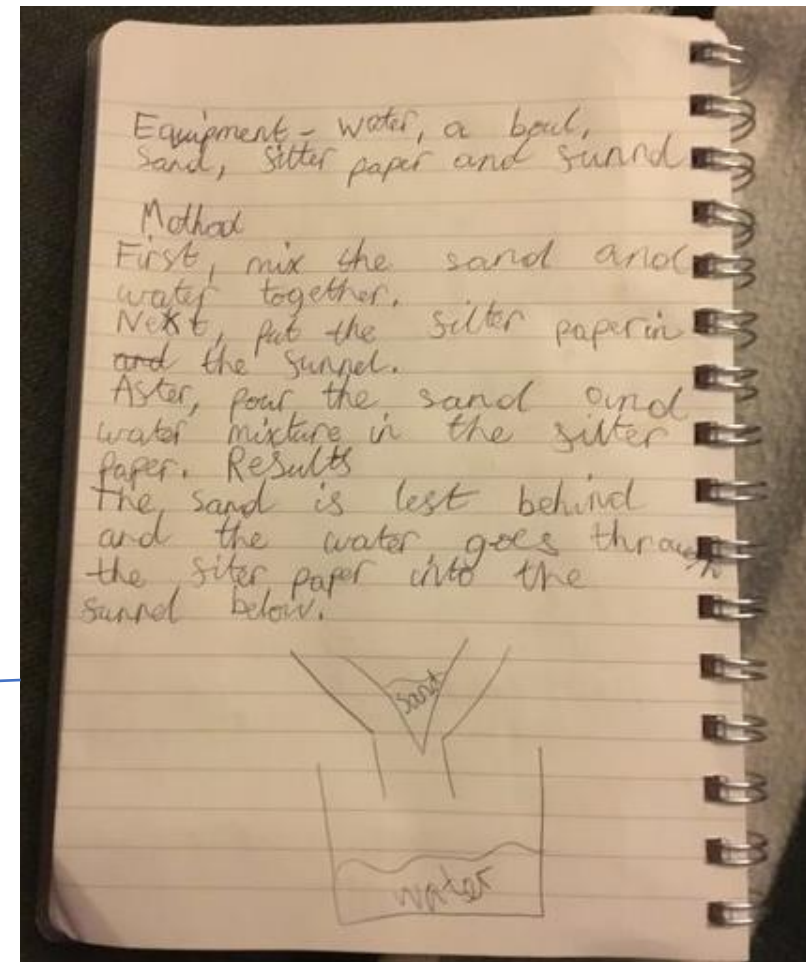 Equipment - water, a bowl,
sand, filter paper and funnel
Method
First, mix the sand and
water together.
Next, put the filter paper in
and the funnel.
After, pour the sand and
water mixture in the filter
paper. Results
the sand is left behind
and the water goes through
the filter paper into the
funnel below.
sand
water